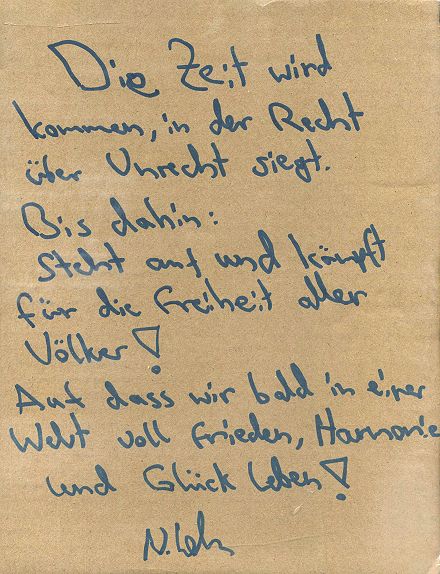 Die Zeit wird
kommen, in der Recht
über Unrecht siegt.
Bis dahin:
Steht auf und kämpft
für die Freiheit aller
Völker!
Auf dass wir bald in einer
Welt voll Frieden, Harmonie
und Glück leben!
N.